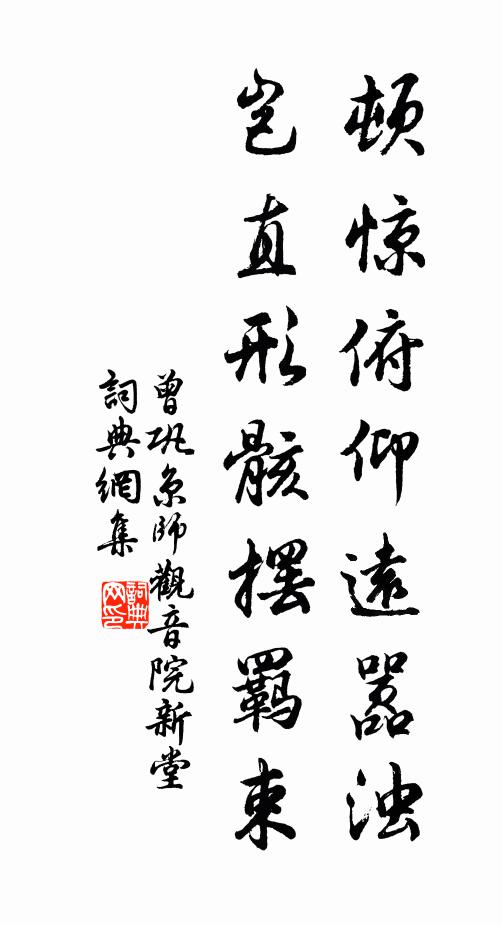 顿惊俯仰遠嚣浊
岂直形骸摆羁束
曾巩京師觀音院新堂
詞典網集
詞典网印